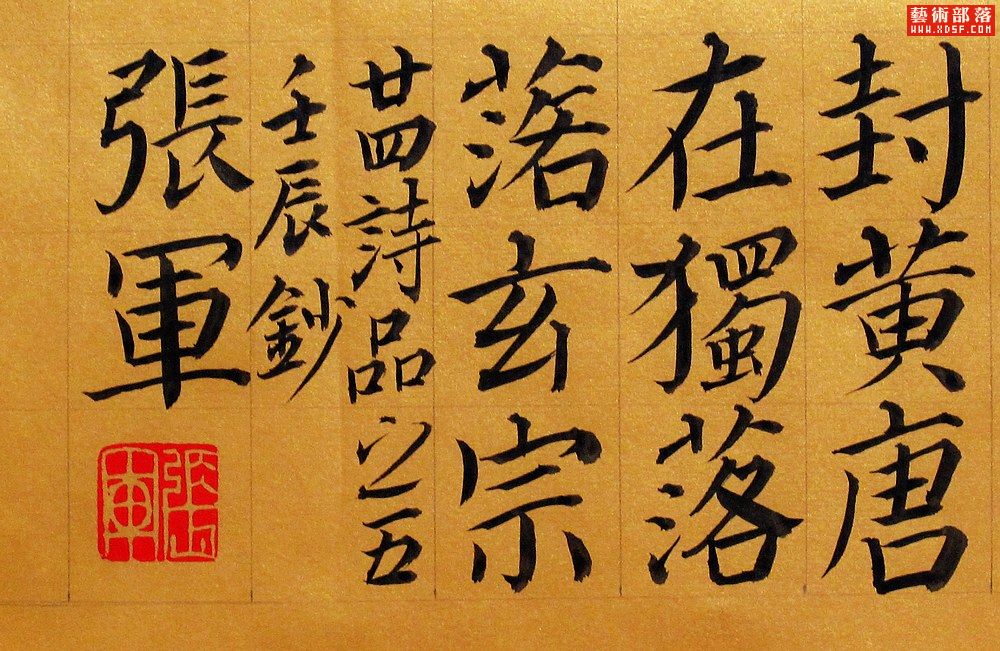 封黃唐
在獨落
落玄宗
廿四詩品之五
壬辰鈔
張軍
張軍
藝術部落
WWW.XDSF.COM